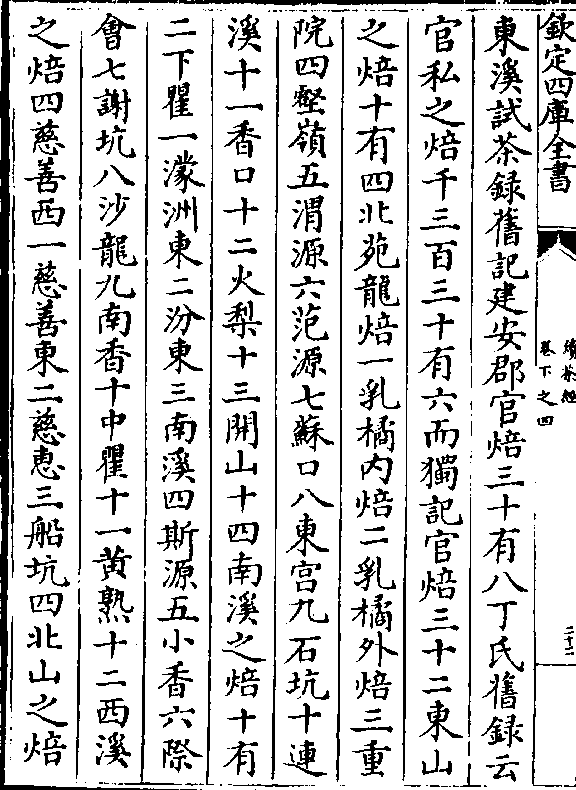 欽定四庫全書
續茶經
卷下之四
二十二
東溪試茶録舊記建安郡官焙三十有八丁氏舊録云
官私之焙千三百三十有六而獨記官焙三十二東山
之焙十有四北苑龍焙一乳橘内焙二乳橘外焙三重
院四壑嶺五渭源六范源七蘇口八東宫九石坑十連
溪十一香口十二火梨十三開山十四南溪之焙十有
二下瞿一濛洲東二汾東三南溪四斯源五小香六際
會七謝坑八沙龍九南香十中瞿十一黄熟十二西溪
之焙四慈善西一慈善東二慈惠三船坑四北山之焙